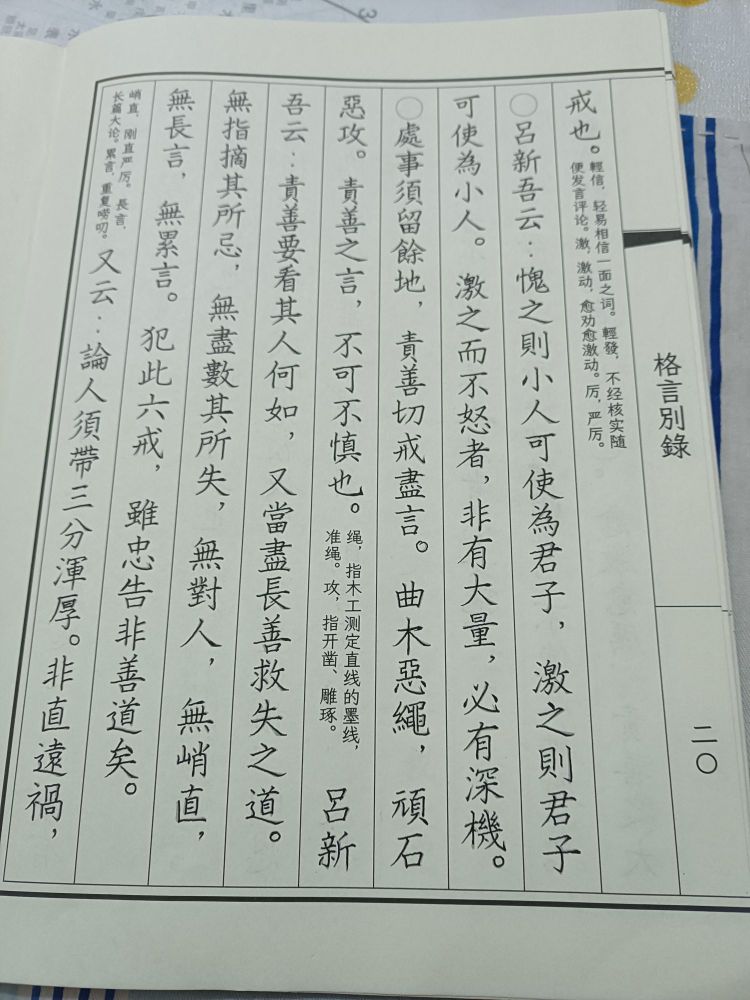 格言別錄
二〇
戒也。輕信，轻易相信一面之词。輕發，不经核实随
便发言评论。激，激动，愈劝愈激动。厉，严厉。
〇呂新吾云：愧之則小人可使為君子，激之則君子
可使為小人。激之而不怒者，非有大量，必有深機。
〇處事須留餘地，責善切戒盡言。曲木惡繩，頑石
惡攻。責善之言，不可不慎也。绳，指木工测定直线的墨线，
准绳。攻，指开凿、雕琢。
呂新
吾云：責善要看其人何如，又當盡長善救失之道。
無指摘其所忌，無盡數其所失，無對人，無峭直，
無長言，無累言。犯此六戒，雖忠告非善道矣。
峭直，刚直严厉。長言，
长篇大论。累言，重复唠叨。
又云：論人須帶三分渾厚。非直遠禍，